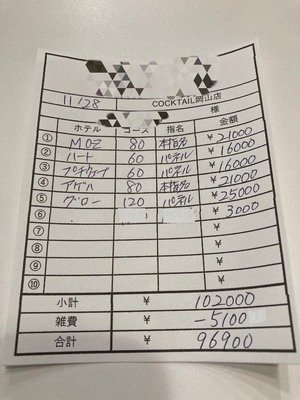 11/28
COCKTAIL岡山店
様
ホテル コース 指名 金額
① MOZ 80 本指名 ¥21000
② ハート 60 パネル ¥16000
③ プチテゥーブ 60 パネル ¥16000
④ アゲハ 80 本指名 ¥21000
⑤ グロー 120 パネル ¥25000
⑥ ¥3000
⑦
⑧
⑨
⑩
小計 ¥ 102000
雑費 ¥ -5100
合計 ¥ 96900